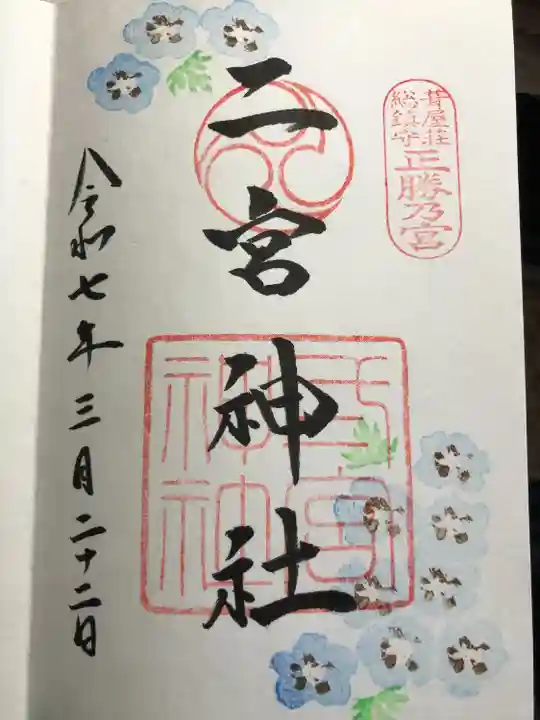 葺屋荘
総鎮守
正勝乃宮
二宮神社
宮
神社
令和七年三月二十二日